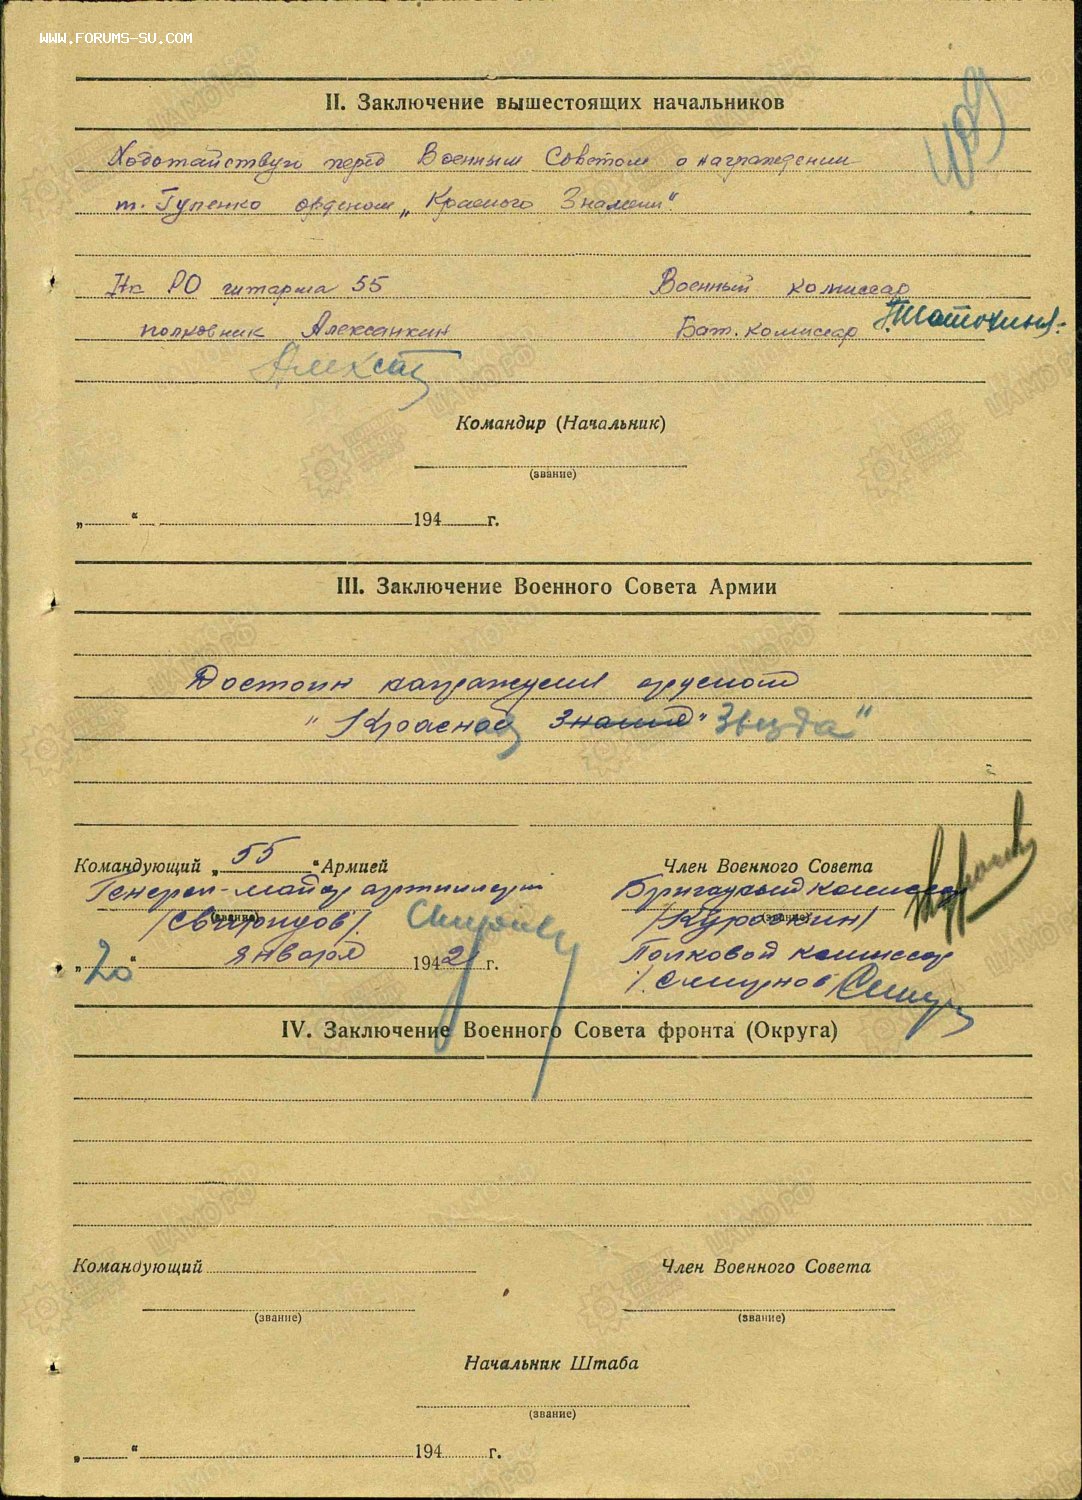 WWW.FORUMS-SU.COM
II. Заключение вышестоящих начальников
Ходотайствую перед Военным Советом о награждении
т. Гупенко орденом „Красного Знамени".
Нк РО штарма 55
Военный комиссар
полковник Алексанкин
Бат. комиссар
Командир (Начальник)
(звание)
„ “ 194 г.
III. Заключение Военного Совета Армии
Достоин награждения орденом
"Красная Знамя" Звезда"
Командующий „55“ Армией
Член Военного Совета
Генерал-майор артиллерии
Бригадный комиссар
(звание)
(звание)
/Свиридов/.
/Курочкин/
„20“ января 1942 г.
Полковой комиссар
/Смирнов/
IV. Заключение Военного Совета фронта (Округа)
Командующий
Член Военного Совета
(звание)
(звание)
Начальник Штаба
(звание)
„ “ 194 г.